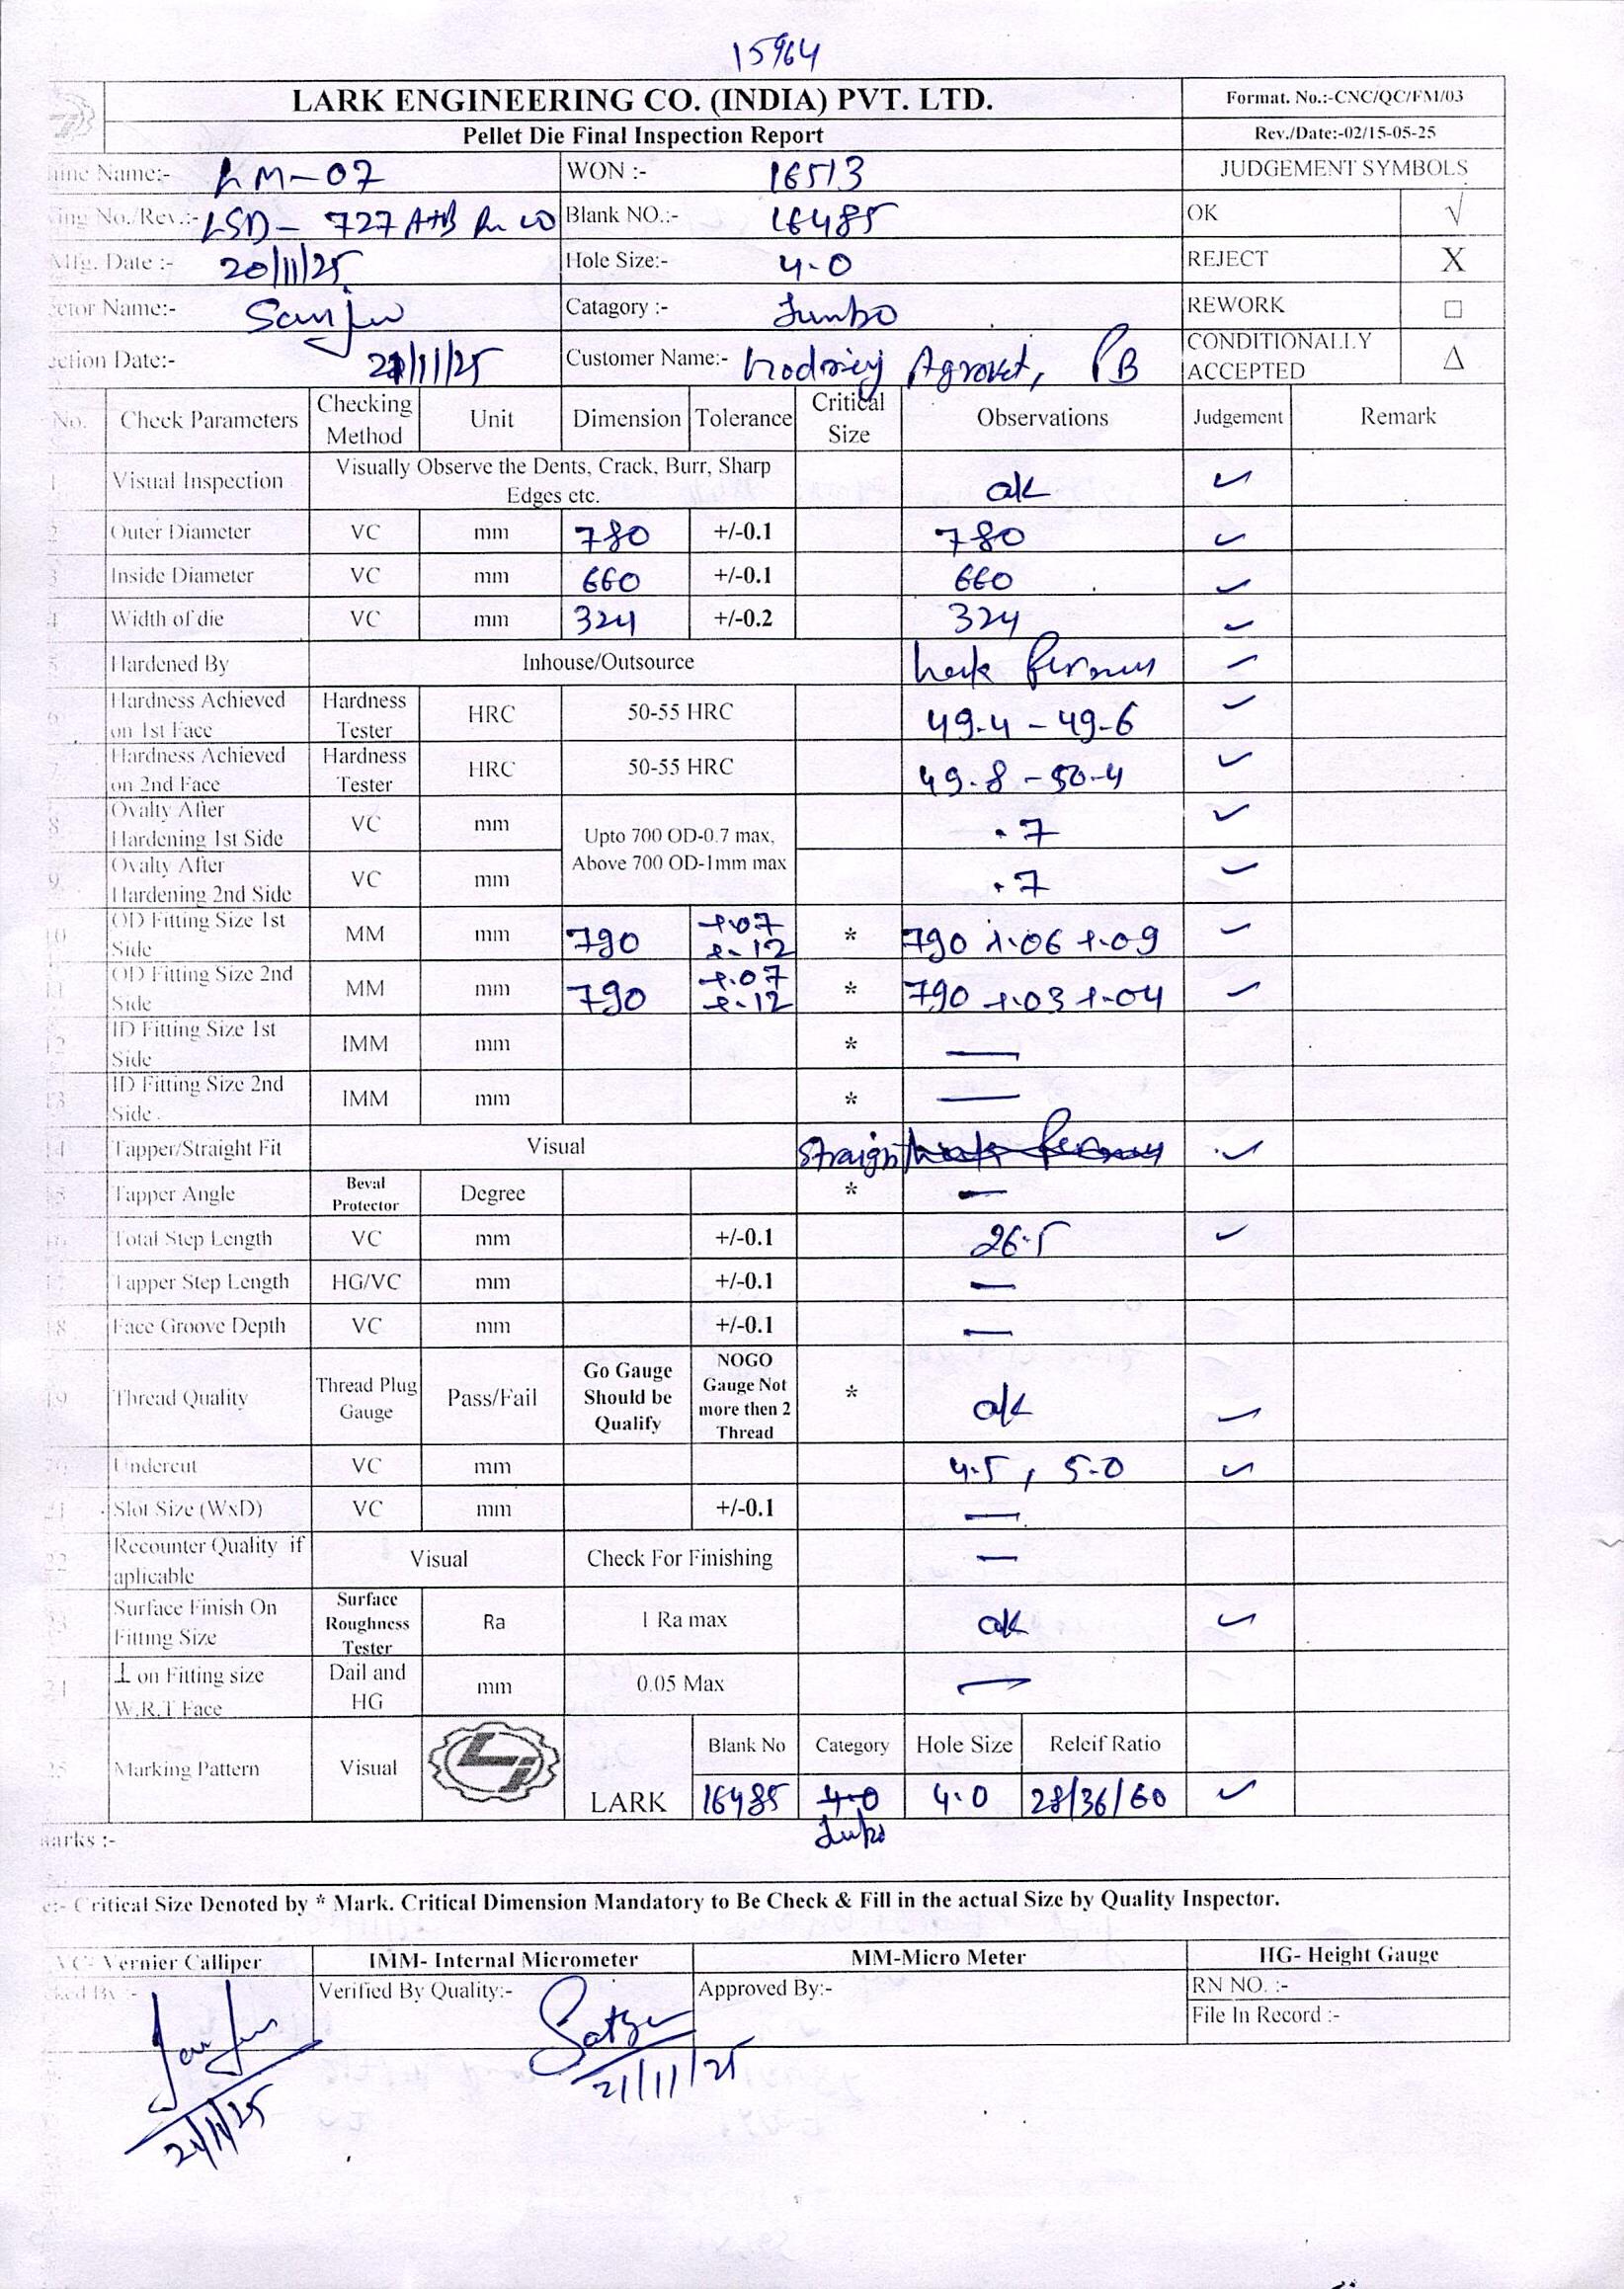 15964
LARK ENGINEERING CO. (INDIA) PVT. LTD.
Format. No.:-CNC/QC/FM/03
Pellet Die Final Inspection Report
Rev./Date:-02/15-05-25
Name:- LM-07 WON :- 16513 JUDGEMENT SYMBOLS
No./Rev.:- LSD- 727 A+B Blank NO.:- 16485 OK √
Mfg. Date :- 20/11/25 Hole Size:- 4.0 REJECT X
Name:- Sanju Catagory :- Jumbo REWORK □
Date:- 21/11/25 Customer Name:- Agrovet, PB CONDITIONALLY ACCEPTED Δ
No. Check Parameters Checking Method Unit Dimension Tolerance Critical Size Observations Judgement Remark
1 Visual Inspection Visually Observe the Dents, Crack, Burr, Sharp Edges etc. ok ✓
2 Outer Diameter VC mm 780 +/-0.1 780 ✓
3 Inside Diameter VC mm 660 +/-0.1 660 ✓
4 Width of die VC mm 324 +/-0.2 324 ✓
5 Hardened By Inhouse/Outsource ✓
6 Hardness Achieved on 1st Face Hardness Tester HRC 50-55 HRC 49.4 - 49.6 ✓
7 Hardness Achieved on 2nd Face Hardness Tester HRC 50-55 HRC 49.8 - 50.4 ✓
8 Ovalty After Hardening 1st Side VC mm Upto 700 OD-0.7 max, Above 700 OD-1mm max .7 ✓
9 Ovalty After Hardening 2nd Side VC mm .7 ✓
10 OD Fitting Size 1st Side MM mm 790 +.07 +.12 * 790 +.06 +.09 ✓
11 OD Fitting Size 2nd Side MM mm 790 +.07 +.12 * 790 +.03 +.04 ✓
12 ID Fitting Size 1st Side IMM mm * —
13 ID Fitting Size 2nd Side . IMM mm * —
14 Tapper/Straight Fit Visual Straight ✓
15 Tapper Angle Beval Protector Degree * —
16 Total Step Length VC mm +/-0.1 26.5 ✓
17 Tapper Step Length HG/VC mm +/-0.1 —
18 Face Groove Depth VC mm +/-0.1 —
19 Thread Quality Thread Plug Gauge Pass/Fail Go Gauge Should be Qualify NOGO Gauge Not more then 2 Thread * ok ✓
20 Undercut VC mm 4.5, 5.0 ✓
21 Slot Size (WxD) VC mm +/-0.1 —
22 Recounter Quality if aplicable Visual Check For Finishing —
23 Surface Finish On Fitting Size Surface Roughness Tester Ra 1 Ra max ok ✓
24 ⊥ on Fitting size W.R.T Face Dail and HG mm 0.05 Max —
25 Marking Pattern Visual LARK Blank No Category Hole Size Releif Ratio
16485 4.0 4.0 28/36/60 ✓
arks :-
:- Critical Size Denoted by * Mark. Critical Dimension Mandatory to Be Check & Fill in the actual Size by Quality Inspector.
VC- Vernier Calliper IMM- Internal Micrometer MM-Micro Meter HG- Height Gauge
By :- Verified By Quality:- Approved By:- RN NO. :-
File In Record :-
21/11/25
21/11/25